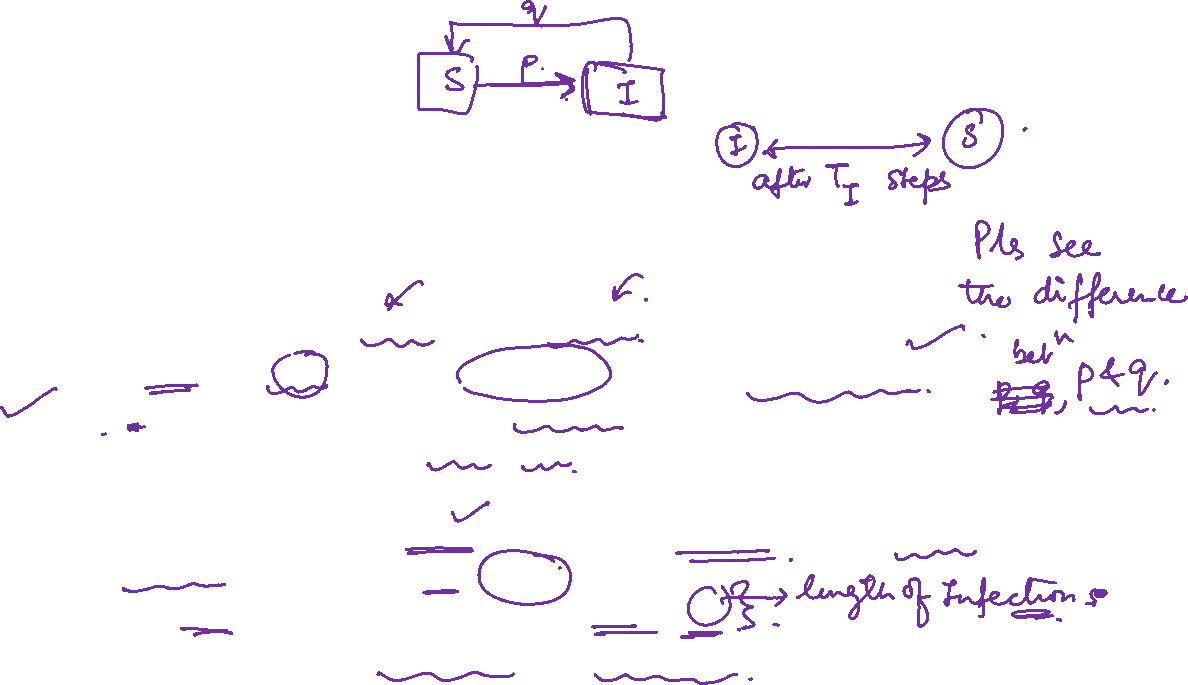 q
S p. I
I S.
after T_I steps
Pls see
the difference
betⁿ
p & q.
length of Infection